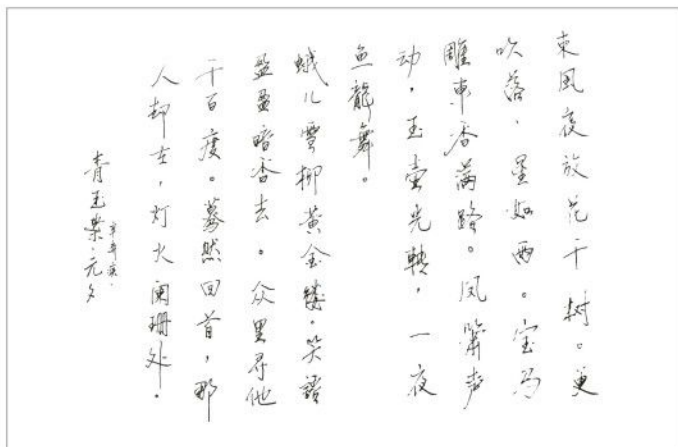 東風夜放花千树。更
吹落、星如雨。宝马
雕車香满路。凤箫声
动，玉壶光轉，一夜
鱼龍舞。
蛾儿雪柳黄金缕。笑語
盈盈暗香去。众里寻他
千百度。蓦然回首，那
人却在，灯火阑珊处。
辛弃疾·
青玉案·元夕